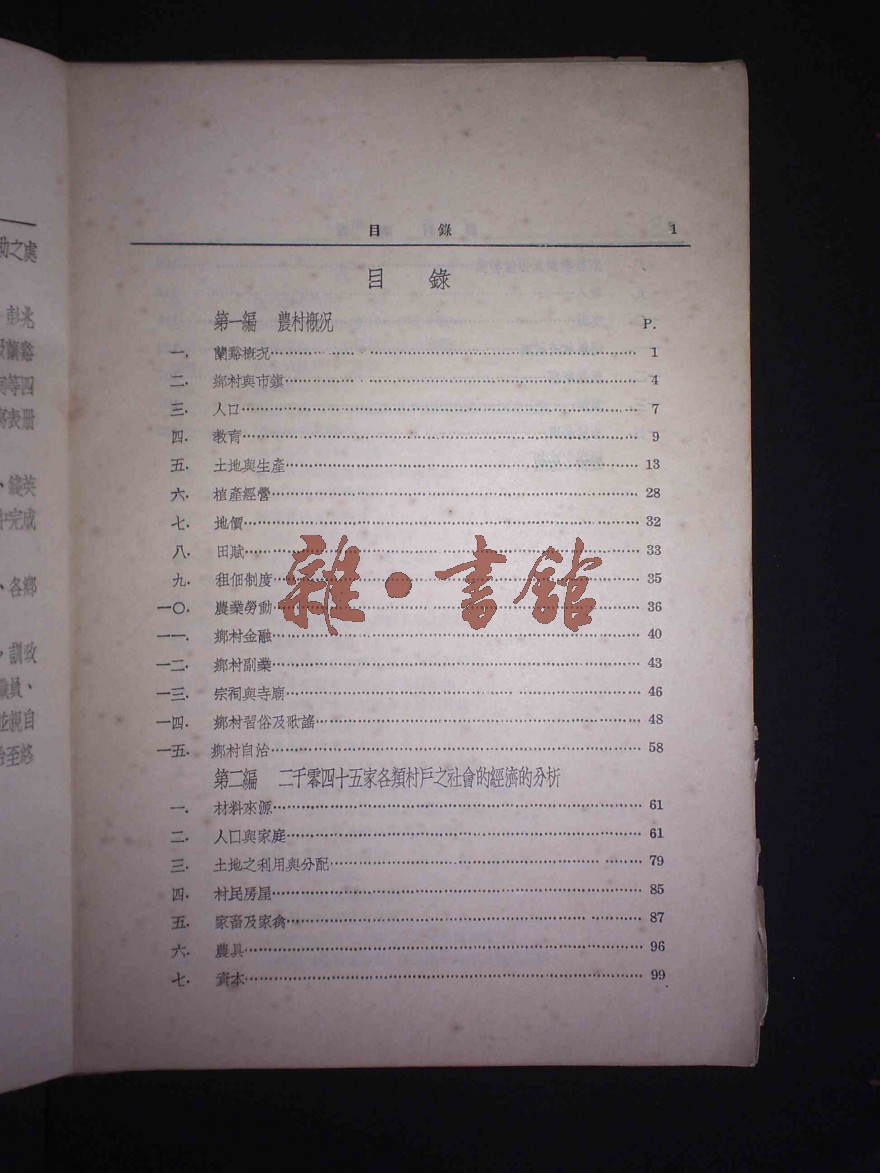 目錄 1
目錄
第一編 農村概況 P.
一. 蘭谿概況 1
二. 鄉村與市鎮 4
三. 人口 7
四. 教育 9
五. 土地與生產 13
六. 植產經營 28
七. 地價 32
八. 田賦 33
九. 租佃制度 35
一〇. 農業勞動 36
一一. 鄉村金融 40
一二. 鄉村副業 43
一三. 宗祠與寺廟 46
一四. 鄉村習俗及歌謠 48
一五. 鄉村自治 58
第二編 二千零四十五家各類村戶之社會的經濟的分析
一. 材料來源 61
二. 人口與家庭 61
三. 土地之利用與分配 79
四. 村民房屋 85
五. 家畜及家禽 87
六. 農具 96
七. 資本 99
雜·書館
之處
彭兆
蘭谿
等四
表册
、錢英
完成
、各鄉
，訓政
員、
親自
至終